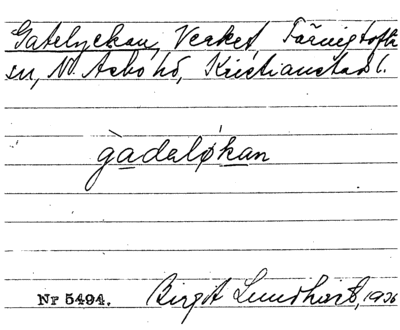 Gatelyckan, Verket, Färingtofta
sn, N. Åsbo hd, Kristianstads l.
gàdeløkan
Nr 5494. Birgit Lundhard, 1936